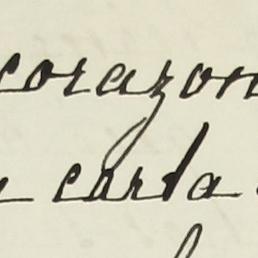 corazon
carta